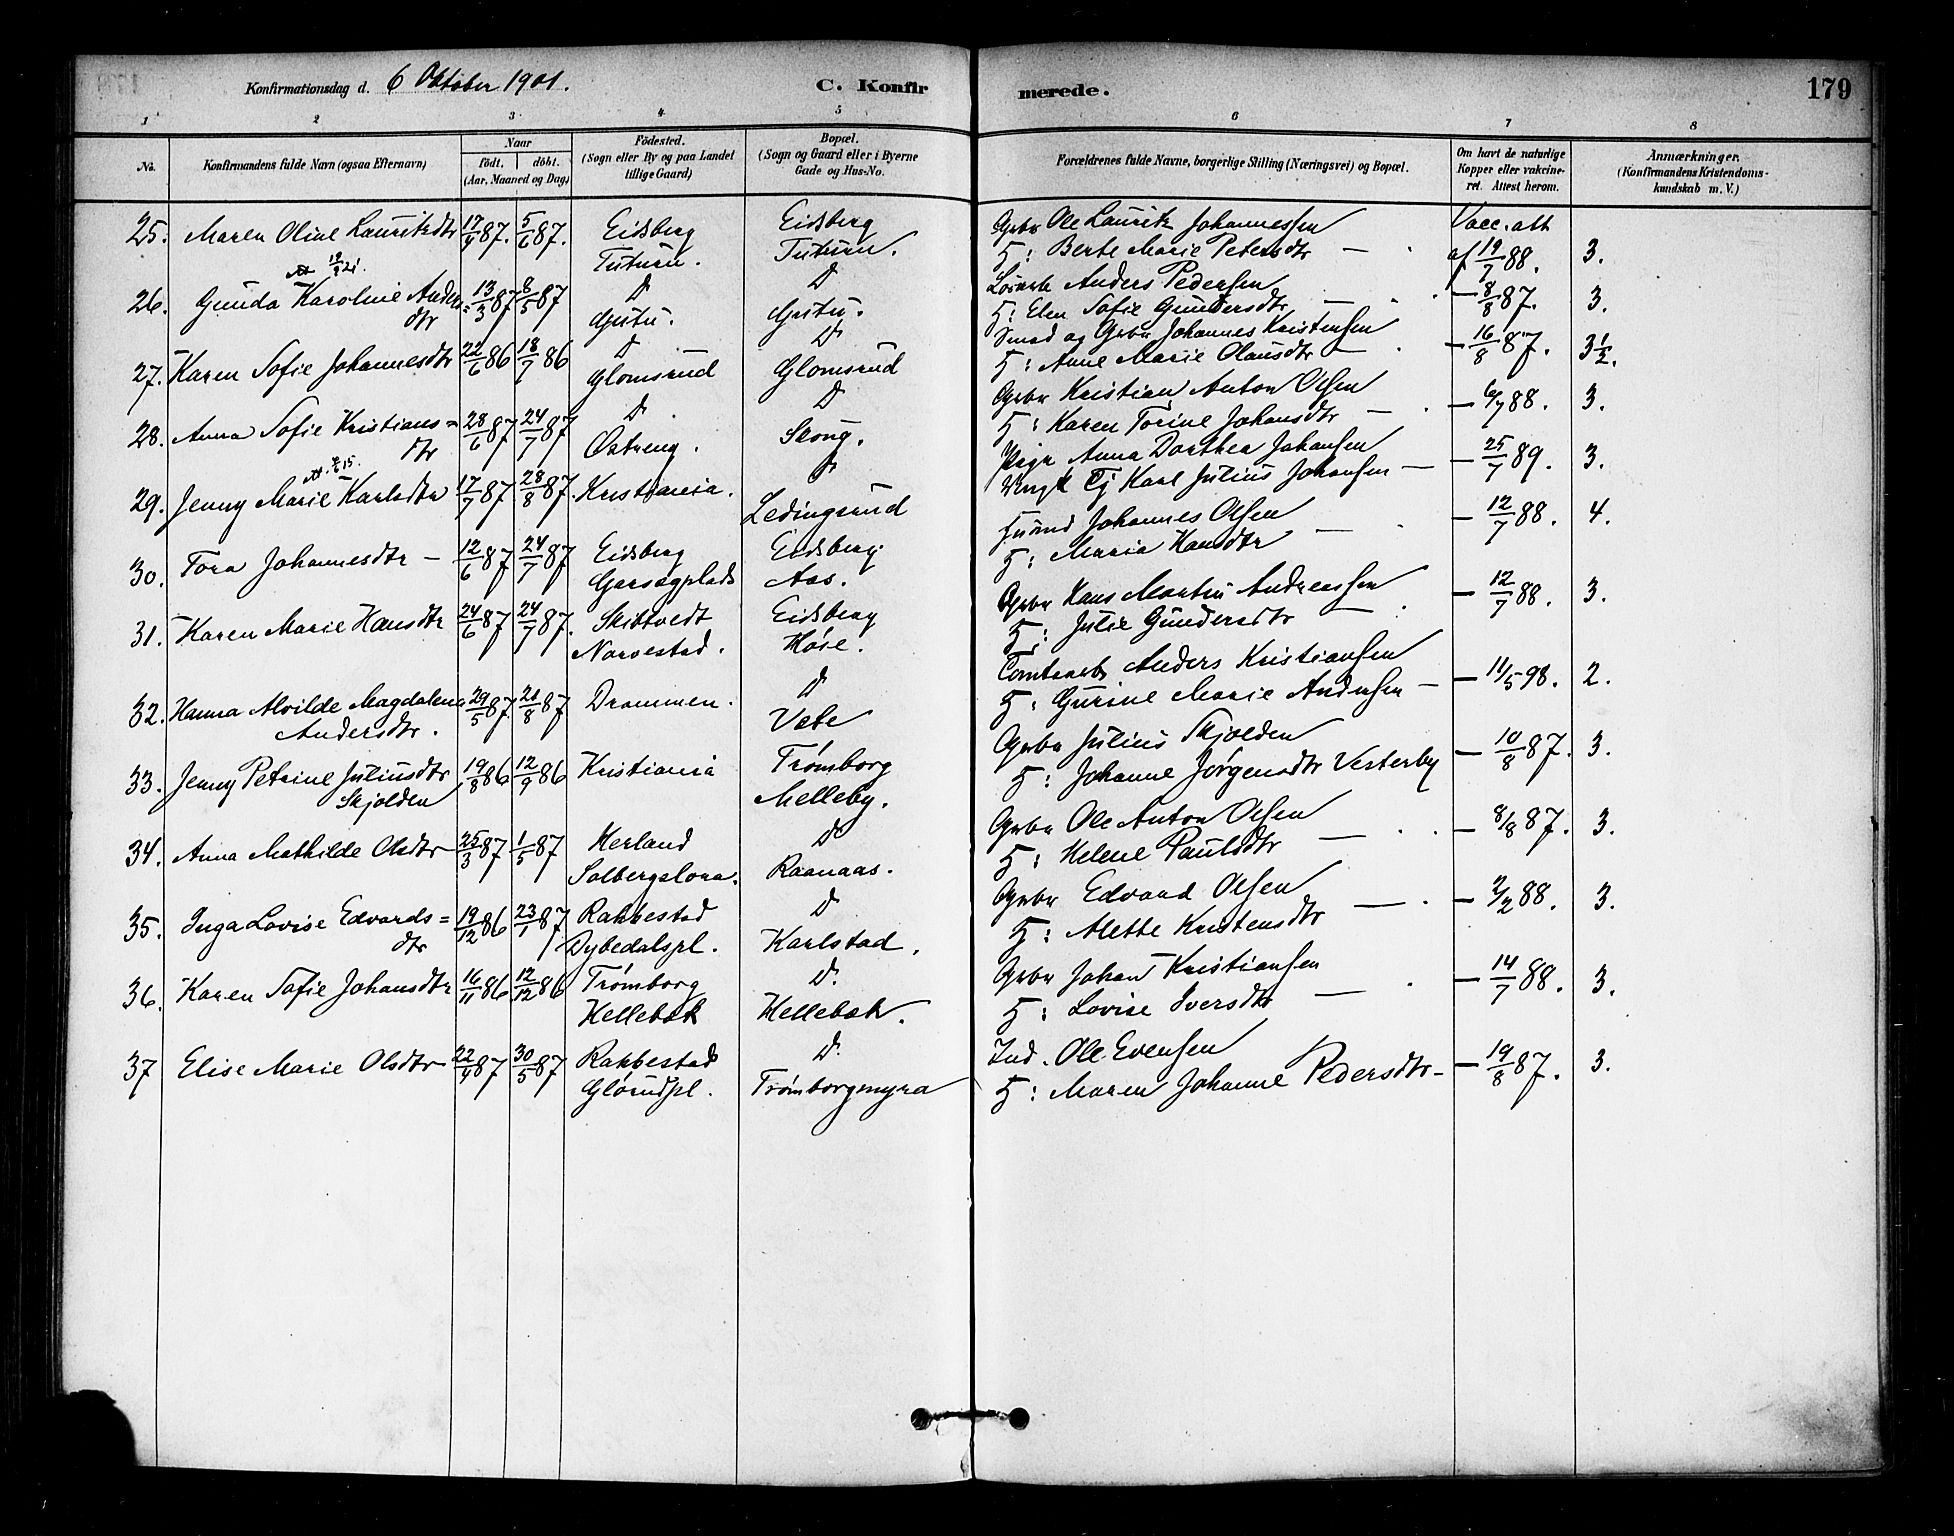 Konfirmationsdag d. 6 Oktober 1901.
C. Konfirmerede.
179
1 2 3 4 5 6 7 8
No.
Konfirmandens fulde Navn (ogsaa Efternavn)
Naar
födt. döbt.
(Aar, Maaned og Dag)
Födested.
(Sogn eller By og paa Landet
tillige Gaard)
Bopæl.
(Sogn og Gaard eller i Byerne
Gade og Hus-No.
Forældrenes fulde Navne, borgerlige Stilling (Næringsvei) og Bopæl.
Om havt de naturlige
Kopper eller vakcineret. Attest herom.
Anmærkninger.
(Konfirmandens Kristendomskundskab m. V.)
25. Maren Oline Lauritzdtr 17/4 87. 5/6 87. Eidsberg Eidsberg Grbr Ole Lauritz Johannessen Vacc. att
Tuturu. Tuturu. H: Berte Marie Petersdtr — af 19/7 88. 3.
26. Gunda Karoline Anders= 13/3 87 8/5 87 D D Anders Pedersen
dtr Gutu. Gutu. H: Elen Sofie Gundersdtr — 8/8 87. 3.
27. Karen Sofie Johannesdtr 22/6 86 18/7 86 D D Smed og Grbr Johannes Kristensen
Glomsrud Glomsrud H: Anne Marie Olausdtr — 16/8 87. 3 1/2.
28. Anna Sofie Kristians= 28/6 87 24/7 87 D. D Grbr Kristian Anton Olsen
dtr Østreng. Skoug. H: Karen Torine Johansdtr — 6/7 88. 3.
29. Jenny Marie Karlsdtr 17/7 87 28/8 87. Kristiania. D Pige Anna Dorthea Johansen
Ledingsrud Ungk Tj Karl Julius Johansen — 25/7 89. 3.
30. Tora Johannesdtr — 12/6 87 24/7 87 Eidsberg Eidsberg Johannes Olsen
Aas. H: Maria Hansdtr — 12/7 88. 4.
31. Karen Marie Hansdtr 24/6 87 24/7 87. Skibtvedt Eidsberg Grbr Hans Martin Andreassen
Norvestad. Høie. H: Julie Gundersdtr — 12/7 88. 3.
32. Hanna Alvilde Magdalena 29/5 87 21/8 87 Drammen. D Tomtearb Anders Kristiansen
Andersdtr. Vebe H: Gurine Marie Andersen — 11/5 98. 2.
33. Jenny Petrine Juliusdtr 19/8 86 12/9 86 Kristiania Trømborg Grbr Julius Skjolden
Skjolden Melleby. H: Johanne Jørgensdtr Vesterby — 10/8 87. 3.
34. Anna Mathilde Olsdtr 25/3 87 1/5 87 Herland D Grbr Ole Anton Olsen
Solbergslora. Raanaas. H: Helene Paulsdtr — 8/8 87. 3.
35. Inga Lovise Edvards= 19/12 86 23/1 87 Rakkestad D Grbr Edvard Olsen
dtr Dybedalspl. Karlstad. H: Alette Kristensdtr — 2/2 88. 3.
36. Karen Sofie Johansdtr 16/11 86 12/12 86 Trømborg D. Grbr Johan Kristiansen
Hellebæk Hellebæk. H: Lovise Iversdtr — 14/7 88. 3.
37 Elise Marie Olsdtr 22/4 87 30/5 87 Rakkestad D. Ind. Ole Evensen
Glørudpl. Trømborgmyra H: Maren Johanne Pedersdtr — 19/8 87. 3.